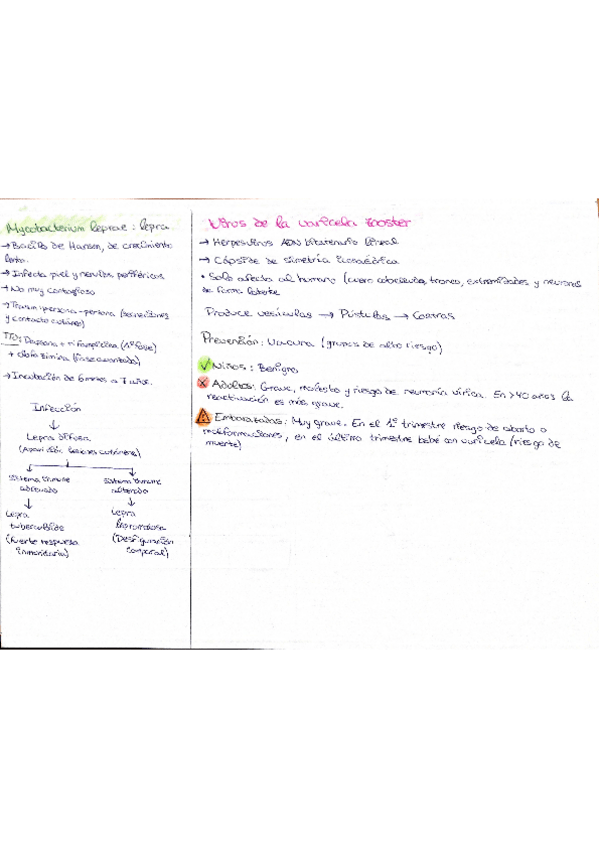 Mycobacterium leprae: lepra
→ Bacilo de Hansen, de crecimiento
lento.
→ Infecta piel y nervios periféricos
→ No muy contagioso
→ Transm: persona-persona (secreciones
y contacto cutáneo)
TTO: Dapsona + rifampicina (1ª fase)
+ clofazimina (fase avanzada)
→ Incubación de 6 meses a 7 años.
Infección
↓
Lepra difusa
(Aparición lesiones cutáneas)
Sistema inmune
adecuado
↓
Lepra
tuberculoide
(fuerte respuesta
inmunitaria)
Sistema inmune
alterado
↓
Lepra
lepromatosa
(Desfiguración
corporal)
Virus de la varicela zooster
→ Herpesvirus ADN bicatenario lineal
→ Cápside de simetría icosaédrica
• Solo afecta al humano (cuero cabelludo, tronco, extremidades y neuronas
de forma latente
Produce vesículas → Pústulas → Costras
Prevención: Vacuna (grupos de alto riesgo)
Niños: Benigna
Adultos: Grave, molesto y riesgo de neumonía vírica. En >40 años la
reactivación es más grave.
Embarazadas: Muy grave. En el 1er trimestre riesgo de aborto o
malformaciones, en el último trimestre bebé con varicela (riesgo de
muerte)